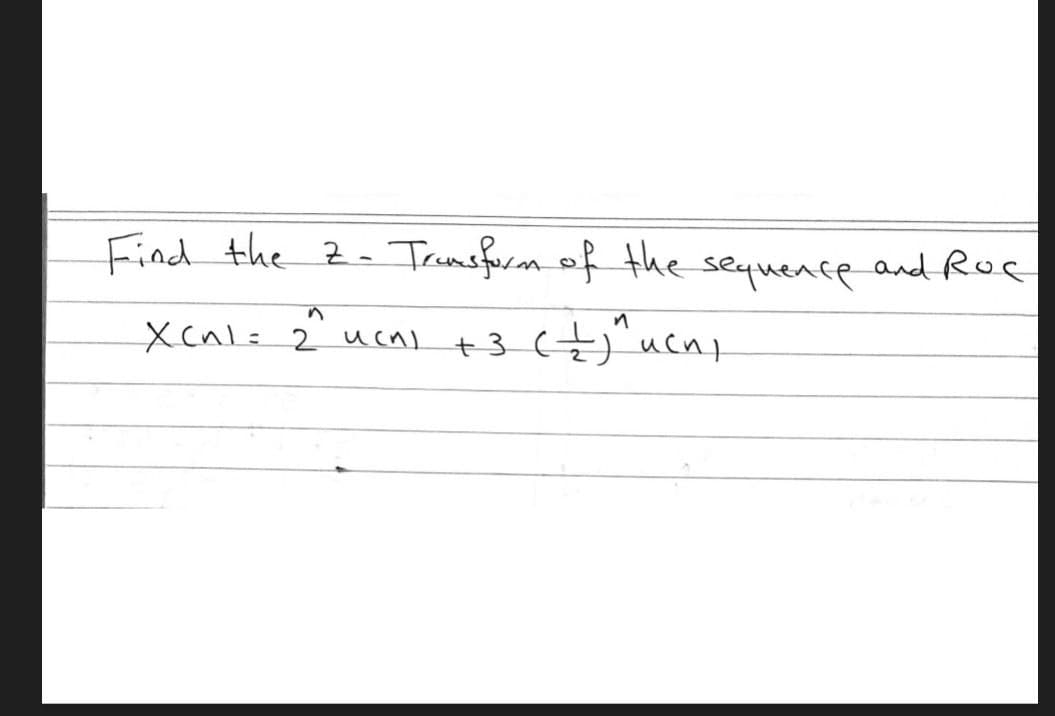 Find the z - Transform of the sequence and ROC
X(n) = 2^n u(n) + 3 (1/2)^n u(n)